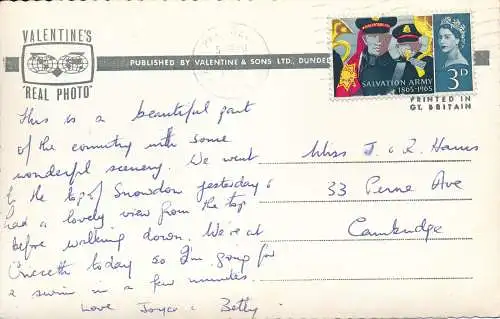 VALENTINE'S
"REAL PHOTO"
PUBLISHED BY VALENTINE & SONS LTD., DUNDEE
SALVATION ARMY
1865-1965
3D
PRINTED IN
GT. BRITAIN
This is a beautiful part
of the country with some
wonderful scenery. We went
to the top of Snowdon yesterday &
had a lovely view from the top
before walking down. We're at
Criccieth today so I'm going for
a swim in a few minutes.
Love Joyce & Betty
Miss J. & R. Hams
33 Perne Ave
Cambridge